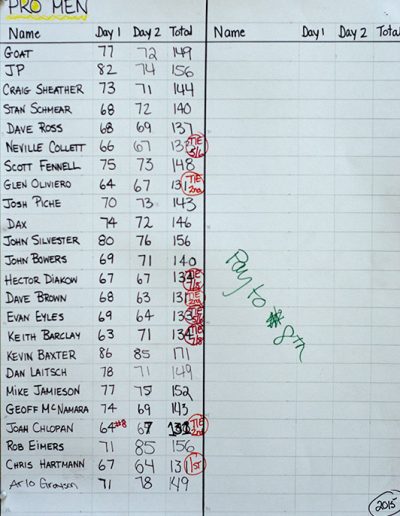 PRO MEN
Name Day 1 Day 2 Total Name Day 1 Day 2 Total
GOAT 77 72 149
JP 82 74 156
CRAIG SHEATHER 73 71 144
STAN SCHMEAR 68 72 140
DAVE ROSS 68 69 137
NEVILLE COLLETT 66 67 133 TIE 5/6
SCOTT FENNELL 75 73 148
GLEN OLIVIERO 64 67 131 TIE 2nd
JOSH PICHE 70 73 143
DAX 74 72 146
JOHN SILVESTER 80 76 156
JOHN BOWERS 69 71 140
HECTOR DIAKOW 67 67 134 TIE 7/8
DAVE BROWN 68 63 131 TIE 2nd
EVAN EYLES 69 64 133 TIE 5/6
KEITH BARCLAY 63 71 134 TIE 7/8
KEVIN BAXTER 86 85 171
DAN LAITSCH 78 71 149
MIKE JAMIESON 77 75 152
GEOFF McNAMARA 74 69 143
CHLOPAN 64 #8 67 TIE 2nd
ROB EIMERS 71 85 156
CHRIS HARTMANN 67 64 131 1ST
Arlo Grayson 71 78 149
Pay to 8th
2015